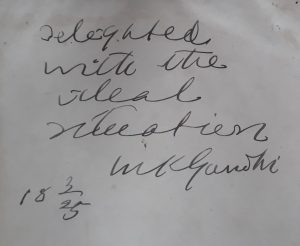 delighted
with the
ideal
situation
MKGandhi
18 3/25